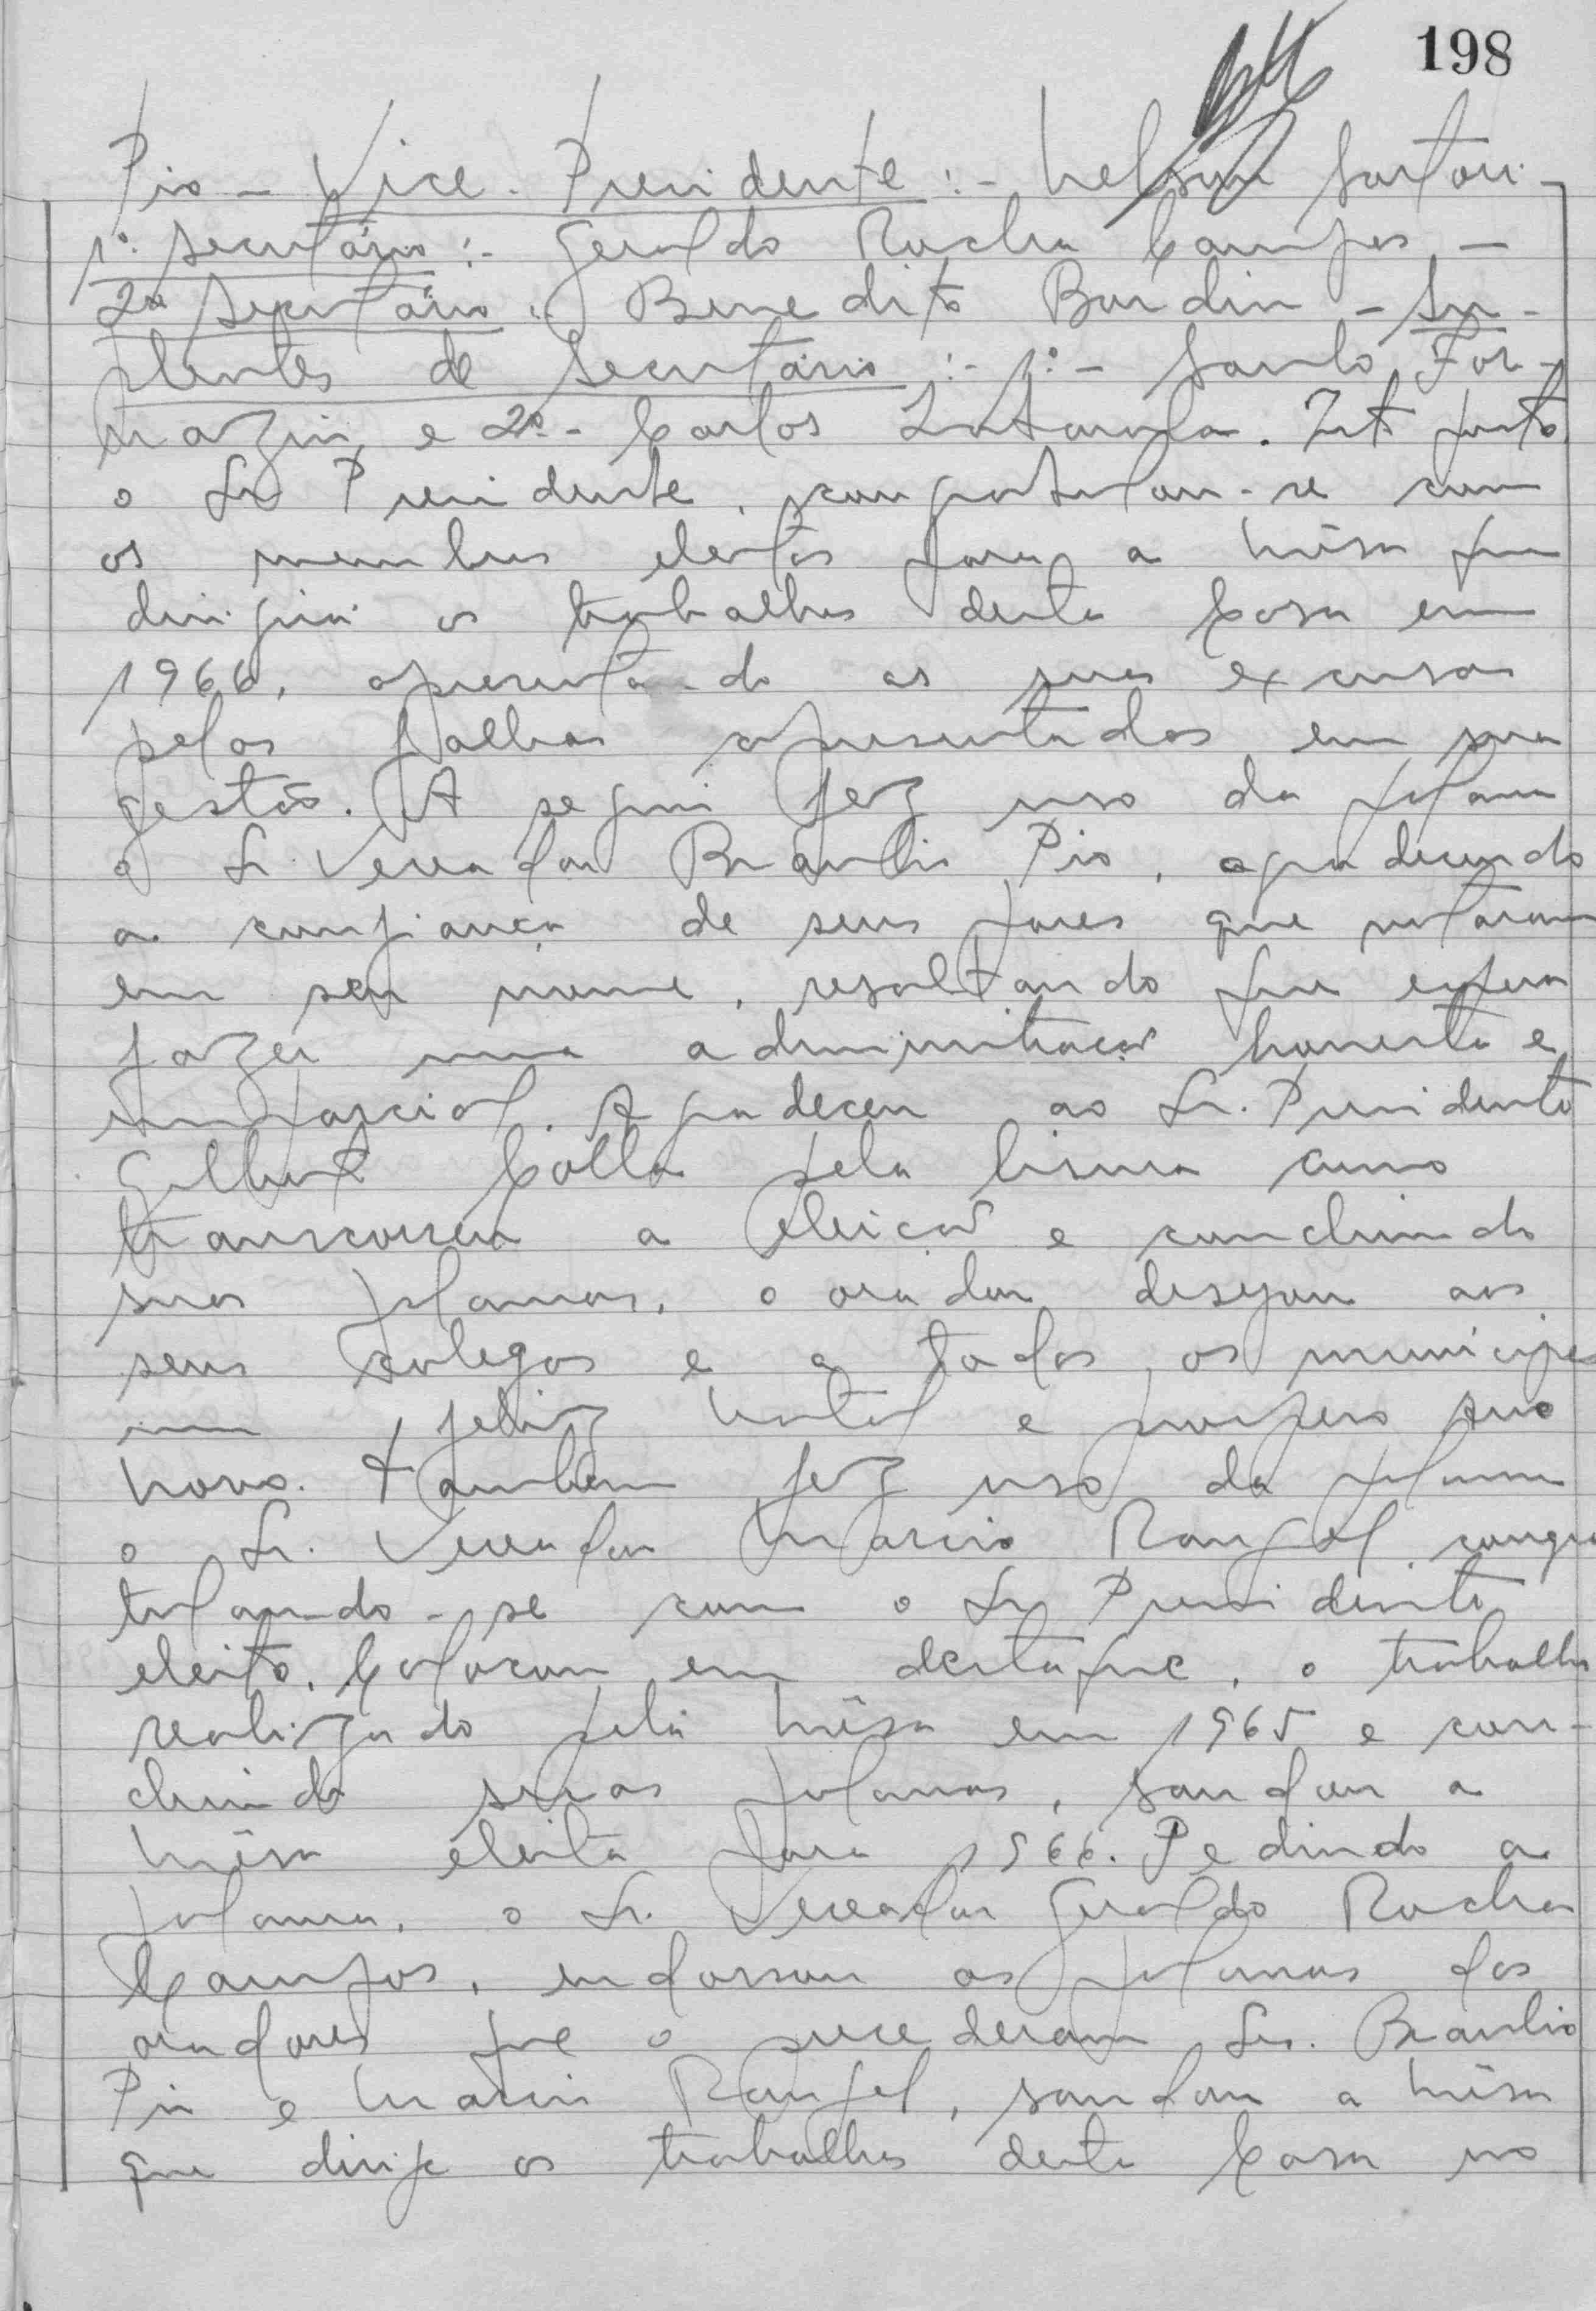 198
Pio - Vice-Presidente :- Nelson Sartori -
1º Secretário :- Geraldo Rocha Campos -
2º Secretário :- Benedito Bordin - Su-
plentes de Secretário :- 1º - Santo For-
mazin e 2º - Carlos Zutarola. Isto posto
o Sr Presidente, congratulou-se com
os membros eleitos para a mêsa que
dirigirá os trabalhos desta Casa em
1966, apresentando as suas excusas
pelas falhas apresentadas em sua
gestão. A seguir fez uso da palavra
o Sr. Vereador Braulio Pio, agradecendo
a confiança de seus pares que votaram
em seu nome, resaltando que espera
fazer uma administração honesta e
imparcial. Agradeceu ao Sr. Presidente
Gilberto Colla pela lisura como
transcorreu a eleição e concluindo
suas palavras, o orador desejou aos
seus colegas e a todos os municipes
um feliz Natal e prospero ano
novo. Também fez uso da palavra
o Sr. Vereador Marcio Rangel, congra
tulando-se com o Sr Presidente
eleito. Colocou em destaque, o trabalho
realizado pela Mêsa em 1965 e con-
cluindo suas palavras, saudou a
Mêsa eleita para 1966. Pedindo a
palavra, o Sr. Vereador Geraldo Rocha
Campos, endossou as palavras dos
oradores que o precederam Srs. Braulio
Pio e Marcio Rangel, saudou a Mêsa
que dirige os trabalhos desta Casa no